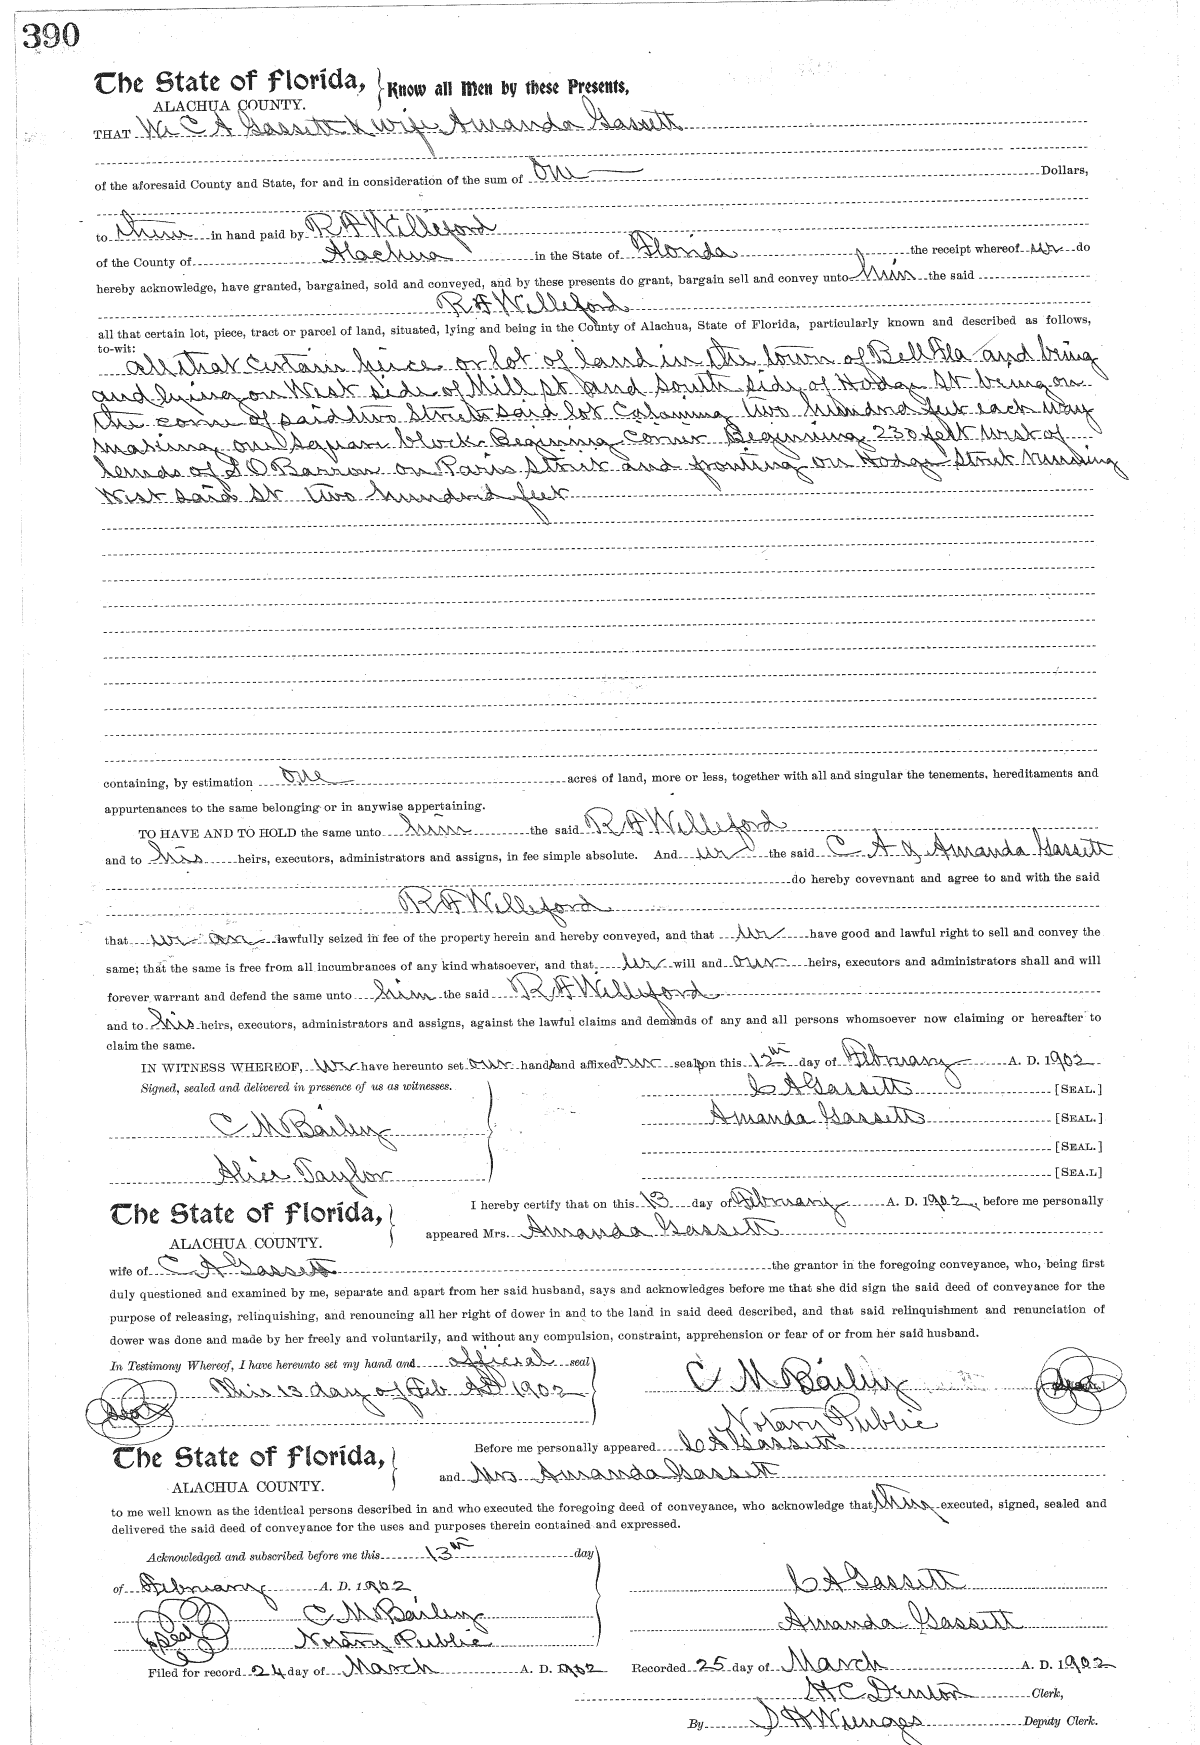 390
The State of Florida, Know all Men by these Presents,
ALACHUA COUNTY.
THAT We C A Gassett & wife Amanda Gassett
of the aforesaid County and State, for and in consideration of the sum of One Dollars,
to them in hand paid by R F Williford
of the County of Alachua in the State of Florida the receipt whereof we do
hereby acknowledge, have granted, bargained, sold and conveyed, and by these presents do grant, bargain sell and convey unto him the said
R F Williford
all that certain lot, piece, tract or parcel of land, situated, lying and being in the County of Alachua, State of Florida, particularly known and described as follows,
to-wit:
all that certain piece or lot of land in the town of Bell Fla and being
and lying on West side of Mill St and South side of Hodge St being on
the corn of said two Streets said lot Containing two hundred feet each way
making one square block. Begining Corner Beginning 230 feet west of
lands of Barron on Paris Street and fronting on Hodge Street running
West said St two hundred feet
containing, by estimation one acres of land, more or less, together with all and singular the tenements, hereditaments and
appurtenances to the same belonging or in anywise appertaining.
TO HAVE AND TO HOLD the same unto him the said R F Williford
and to his heirs, executors, administrators and assigns, in fee simple absolute. And we the said C A & Amanda Gassett
do hereby covevnant and agree to and with the said
R F Williford
that we are lawfully seized in fee of the property herein and hereby conveyed, and that we have good and lawful right to sell and convey the
same; that the same is free from all incumbrances of any kind whatsoever, and that we will and our heirs, executors and administrators shall and will
forever warrant and defend the same unto him the said R F Williford
and to his heirs, executors, administrators and assigns, against the lawful claims and demands of any and all persons whomsoever now claiming or hereafter to
claim the same.
IN WITNESS WHEREOF, we have hereunto set our hands and affixed our seals on this 12th day of February A. D. 1902
Signed, sealed and delivered in presence of us as witnesses.
C A Gassett [SEAL.]
Amanda Gassett [SEAL.]
C M Bailey
[SEAL.]
Alice Taylor
[SEAL]
The State of Florida,
ALACHUA COUNTY.
I hereby certify that on this 13 day of February A. D. 1902, before me personally
appeared Mrs. Amanda Gassett
wife of C A Gassett the grantor in the foregoing conveyance, who, being first
duly questioned and examined by me, separate and apart from her said husband, says and acknowledges before me that she did sign the said deed of conveyance for the
purpose of releasing, relinquishing, and renouncing all her right of dower in and to the land in said deed described, and that said relinquishment and renunciation of
dower was done and made by her freely and voluntarily, and without any compulsion, constraint, apprehension or fear of or from her said husband.
In Testimony Whereof, I have hereunto set my hand and official seal
This 13 day of Feb AD 1902
Seal
C M Bailey
Seal
Notary Public
The State of Florida,
ALACHUA COUNTY.
Before me personally appeared C A Gassett
and Mrs Amanda Gassett
to me well known as the identical persons described in and who executed the foregoing deed of conveyance, who acknowledge that they executed, signed, sealed and
delivered the said deed of conveyance for the uses and purposes therein contained and expressed.
Acknowledged and subscribed before me this 13th day
of February A. D. 1902
C M Bailey
Seal
Notary Public
C A Gassett
Amanda Gassett
Filed for record 24 day of March A. D. 1902 Recorded 25 day of March A. D. 1902
H C Denton Clerk,
By S H Wienges Deputy Clerk.